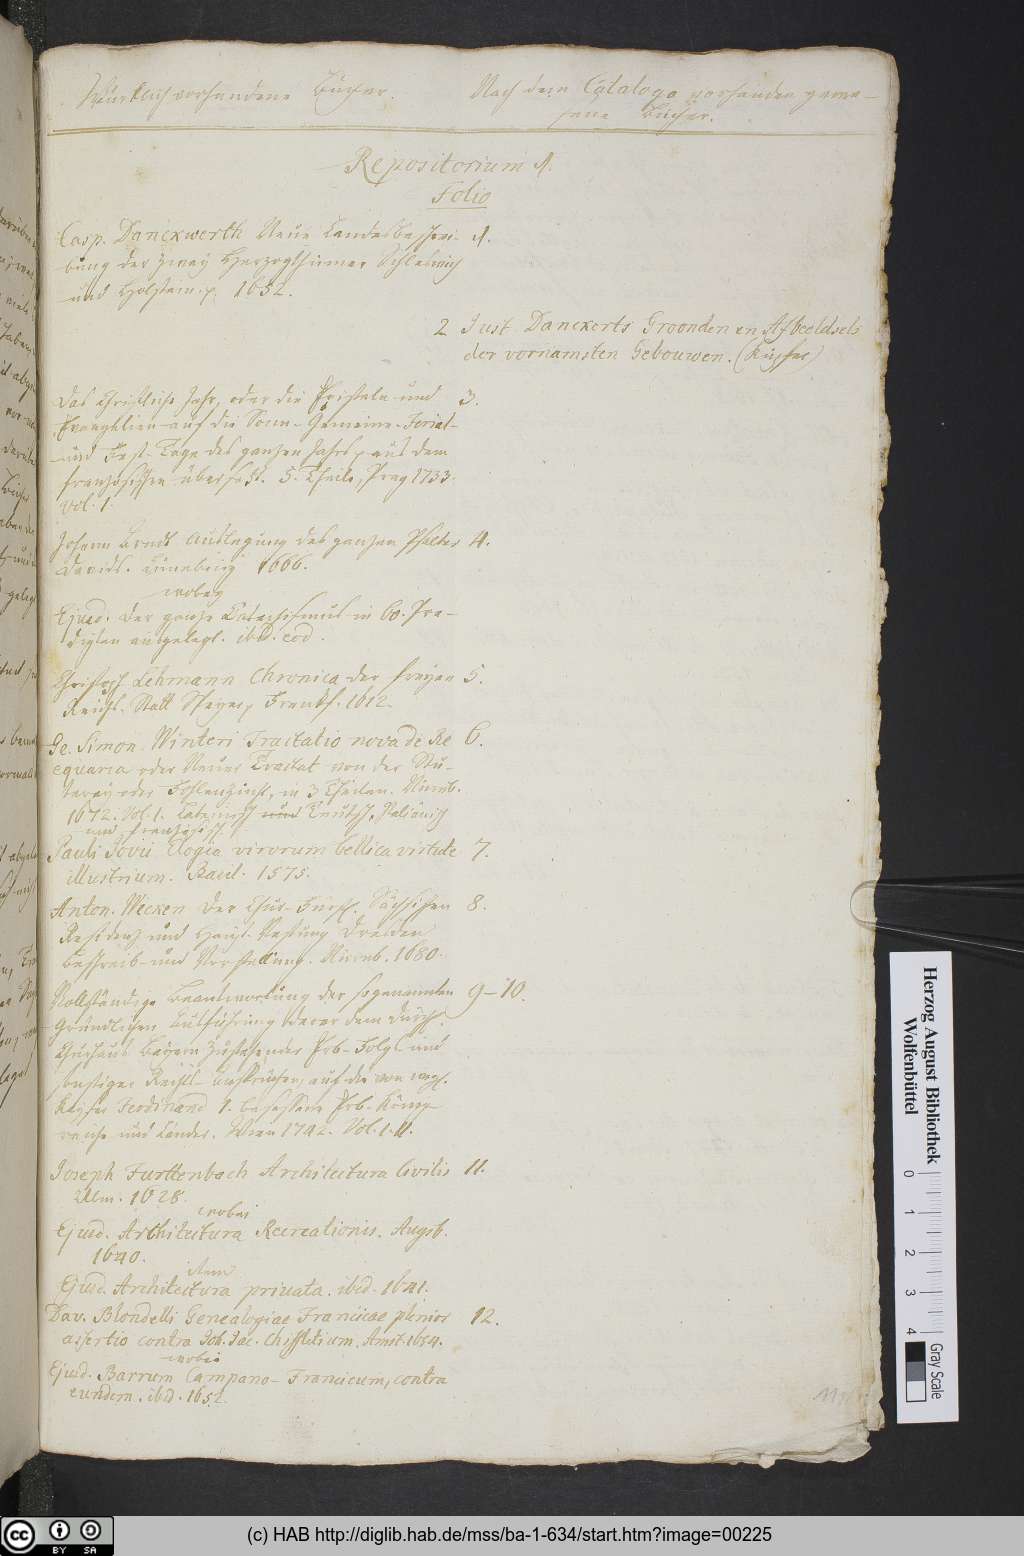 Würklich vorhandene Bücher.
Nach dem Catalogo vorhanden gewe-
sene Bücher.
Repositorium A.
Folio
Casp. Danckwerth Neue Landesbeschrei- A.
bung der zwey Herzogthümer Schleswich
und Holstein. p. 1652.
2 Just. Danckerts Groonden en Afbeeldsels
der vornamsten Gebouwen. (Kupfer)
Das Christliche Jahr, oder die Episteln und 3.
Evangelien auf die Sonn- Gemeine- Ferial-
und Fest-Tage des ganzen Jahrs, aus dem
französischen übersezt. 5. Theile, Prag 1733.
Vol. 1.
Johann Arndt Auslegung des ganzen Psalters 4.
Davids. Lüneburg 1666.
wobey
Ejusd. Der ganze Catechismus in 60. Pre-
digten ausgelegt. ibid. eod.
Christoph Lehmann Chronica der freyen 5.
Reichs-Statt Speyer, Frankf. 1612.
Ge. Simon. Winteri Tractatio nova de Re 6.
equaria oder Neuer Tractat von der Stu-
terey oder Fohlenzucht, in 3 Theilen. Nürnb.
1672. Vol. 1. Lateinisch und Teutsch, Italiänisch
und französisch.
Pauli Jovii Elogia virorum bellica virtute 7.
illustrium. Basil. 1575.
Anton. Wecken Der Chur-Fürstl. Sächsischen 8.
Residenz und Haupt-Vestung Dresden
Beschreib- und Vorstellung. Nürnb. 1680.
Vollständige Beantwortung der sogenannten 9-10.
Gründlichen Ausführung derer dem Durchl.
Churhaus Bayern zustehender Erb-Folgs- und
sonstiger Rechts-Ansprüchen, auf die von weyl.
Kayser Ferdinand 1. besessene Erb-König-
reiche und Länder. Wien 1742. Vol. 1. II.
Joseph Furttenbach Architectura Civilis 11.
Ulm. 1628.
wobei
Ejusd. Architectura Recreationis. Augsb.
1640.
item
Ejusd. Architectura privata. ibid. 1641.
Dav. Blondelli Genealogiae Francicae plenior 12.
assertio contra Joh. Jac. Chiffletium. Amst. 1654.
wobei
Ejusd. Barrum Campano-Francicum, contra
eundem. ibid. 1652.
Herzog August Bibliothek
Wolfenbüttel
0 1 2 3 4
Gray Scale
cc BY SA
(c) HAB http://diglib.hab.de/mss/ba-1-634/start.htm?image=00225